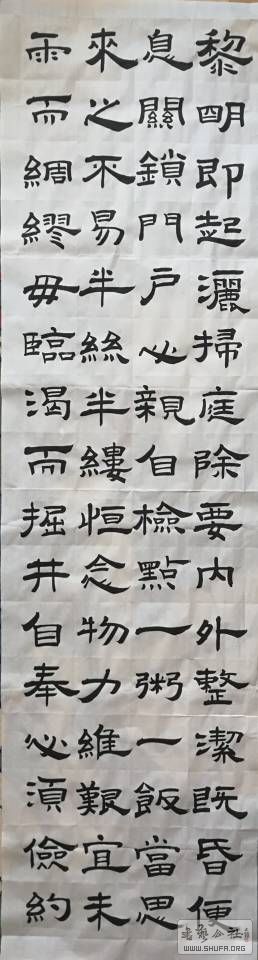 黎明即起灑掃庭除要內外整潔既昏便
息關鎖門戶必親自檢點一粥一飯當思
來之不易半絲半縷恒念物力維艱宜未
雨而綢繆毋臨渴而掘井自奉必須儉約
书艺公社
WWW.SHUFA.ORG